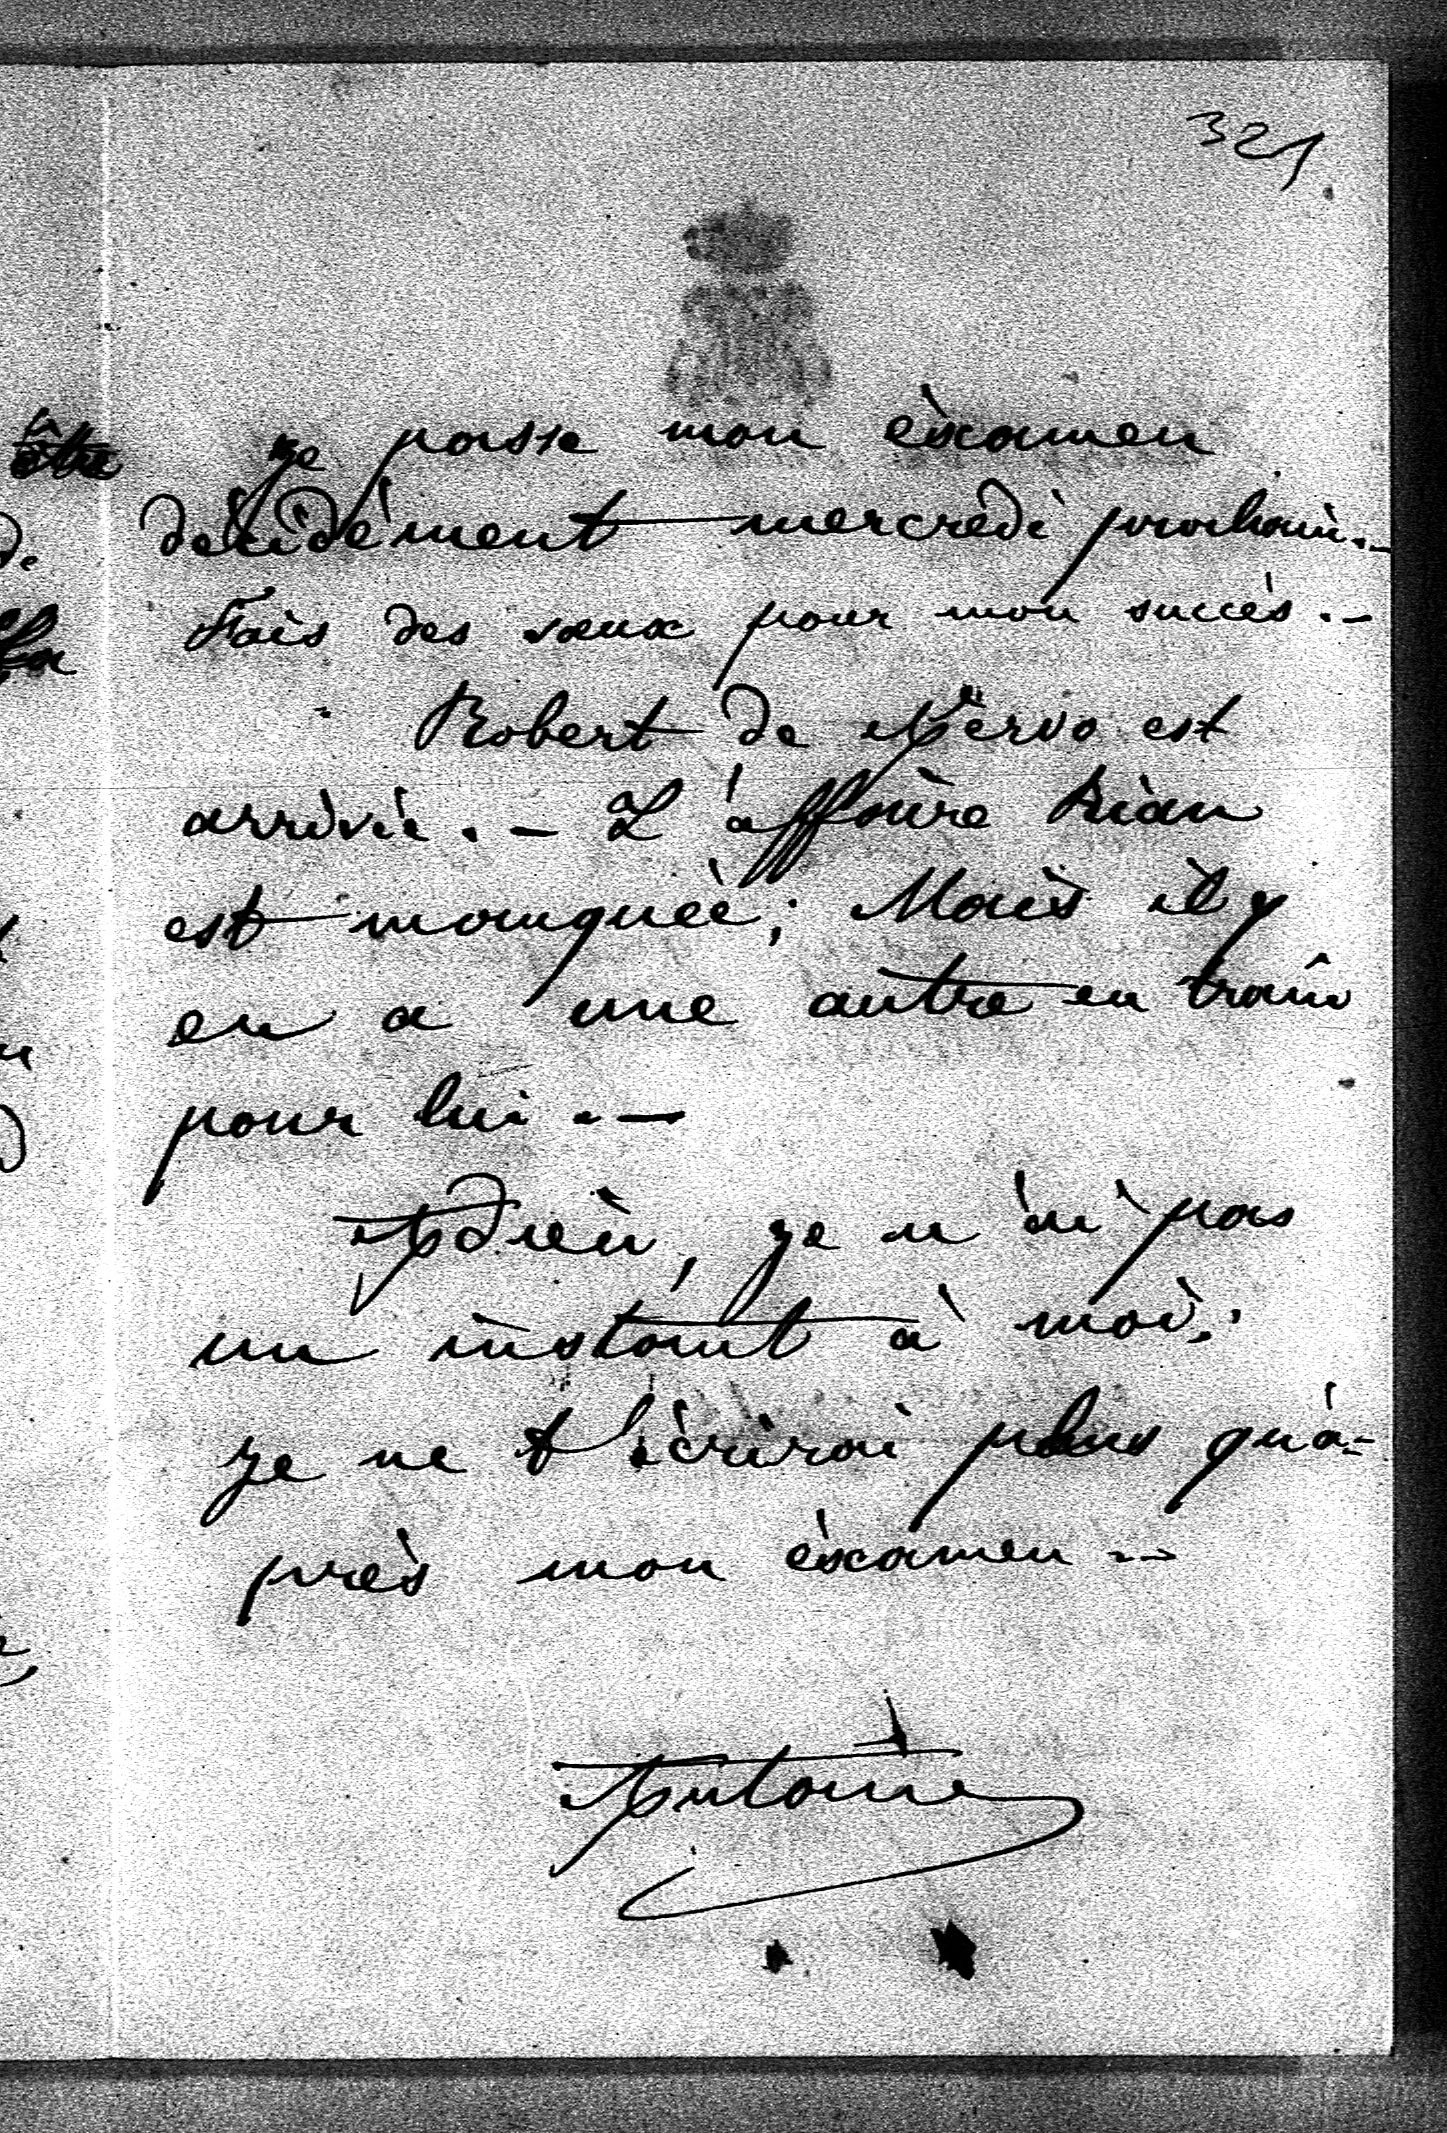 321
je passe mon éxamen
décidément mercredi prochain.-
Fais des vœux pour mon succès.-
Robert de Nervo est
arrivé.- L'affaire
est manquée; Mais il y
en a une autre en train
pour lui.-
Adieu, je n'ai pas
un instant à moi.
je ne t'écrirai plus qu'a-
près mon éxamen.-
Antoine